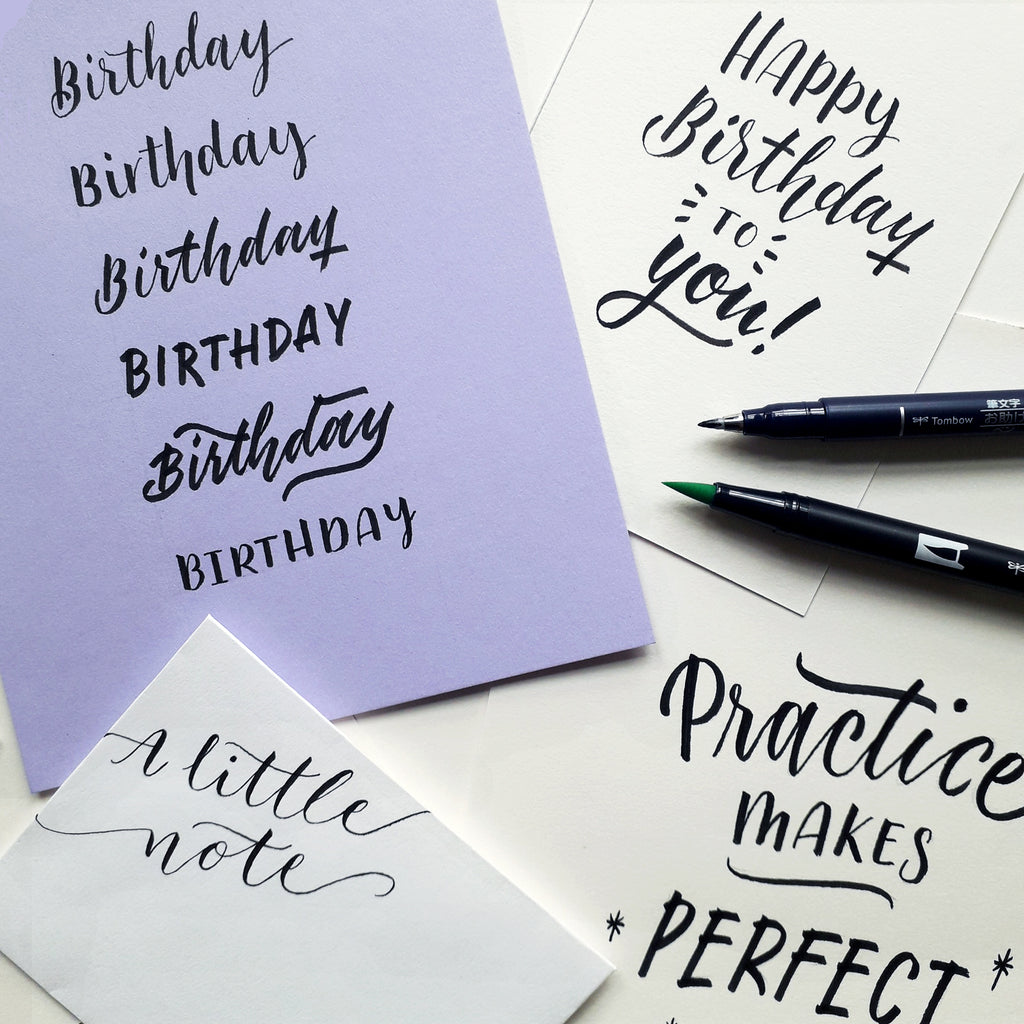 Birthday
Birthday
Birthday
BIRTHDAY
Birthday
BIRTHDAY
HAPPY
Birthday
TO
you!
筆文字
Tombow
A little
note
Practice
MAKES
PERFECT